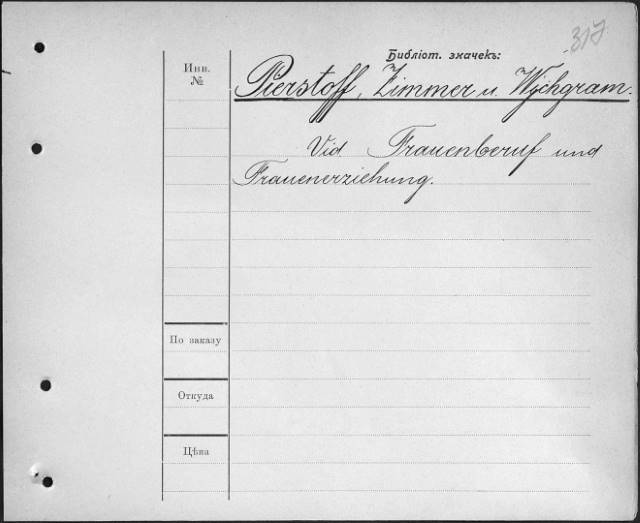 317
Библіот. значекъ:
Инв.
№
Pierstoff, Zimmer u. Wychgram.
Vid Frauenberuf und
Frauenerziehung.
По заказу
Откуда
Цѣна